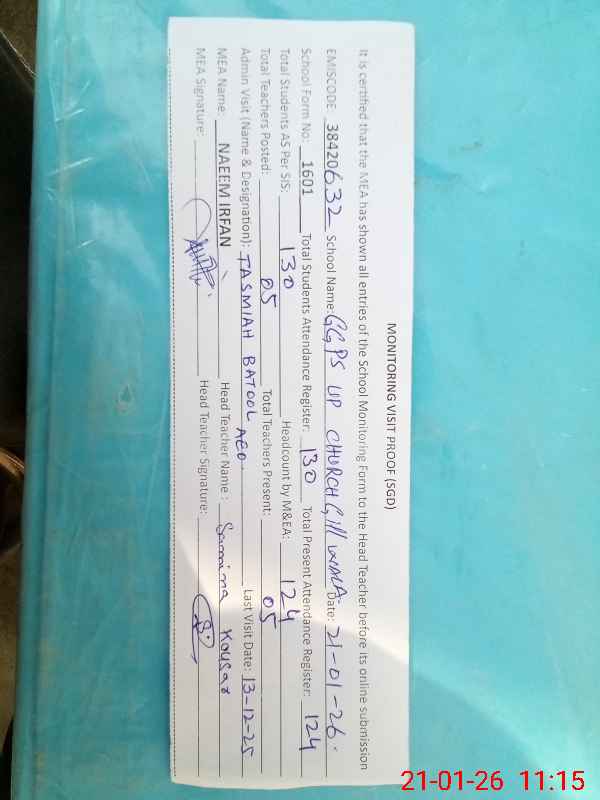 MONITORING VISIT PROOF (SGD)
It is certified that the MEA has shown all entries of the School Monitoring Form to the Head Teacher before its online submission
EMISCODE 38420632 School Name: GGPS UP CHURCH Gill WALA. Date: 21-01-26.
School Form No: 1601 Total Students Attendance Register: 130 Total Present Attendance Register: 124
Total Students AS Per SIS: 130 Headcount by M&EA: 124
Total Teachers Posted: 05 Total Teachers Present: 05
Admin Visit (Name & Designation): TASMIAH BATOOL AEO Last Visit Date: 13-12-25
MEA Name: NAEEM IRFAN Head Teacher Name : Samina Kousar
MEA Signature: Head Teacher Signature:
21-01-26 11:15